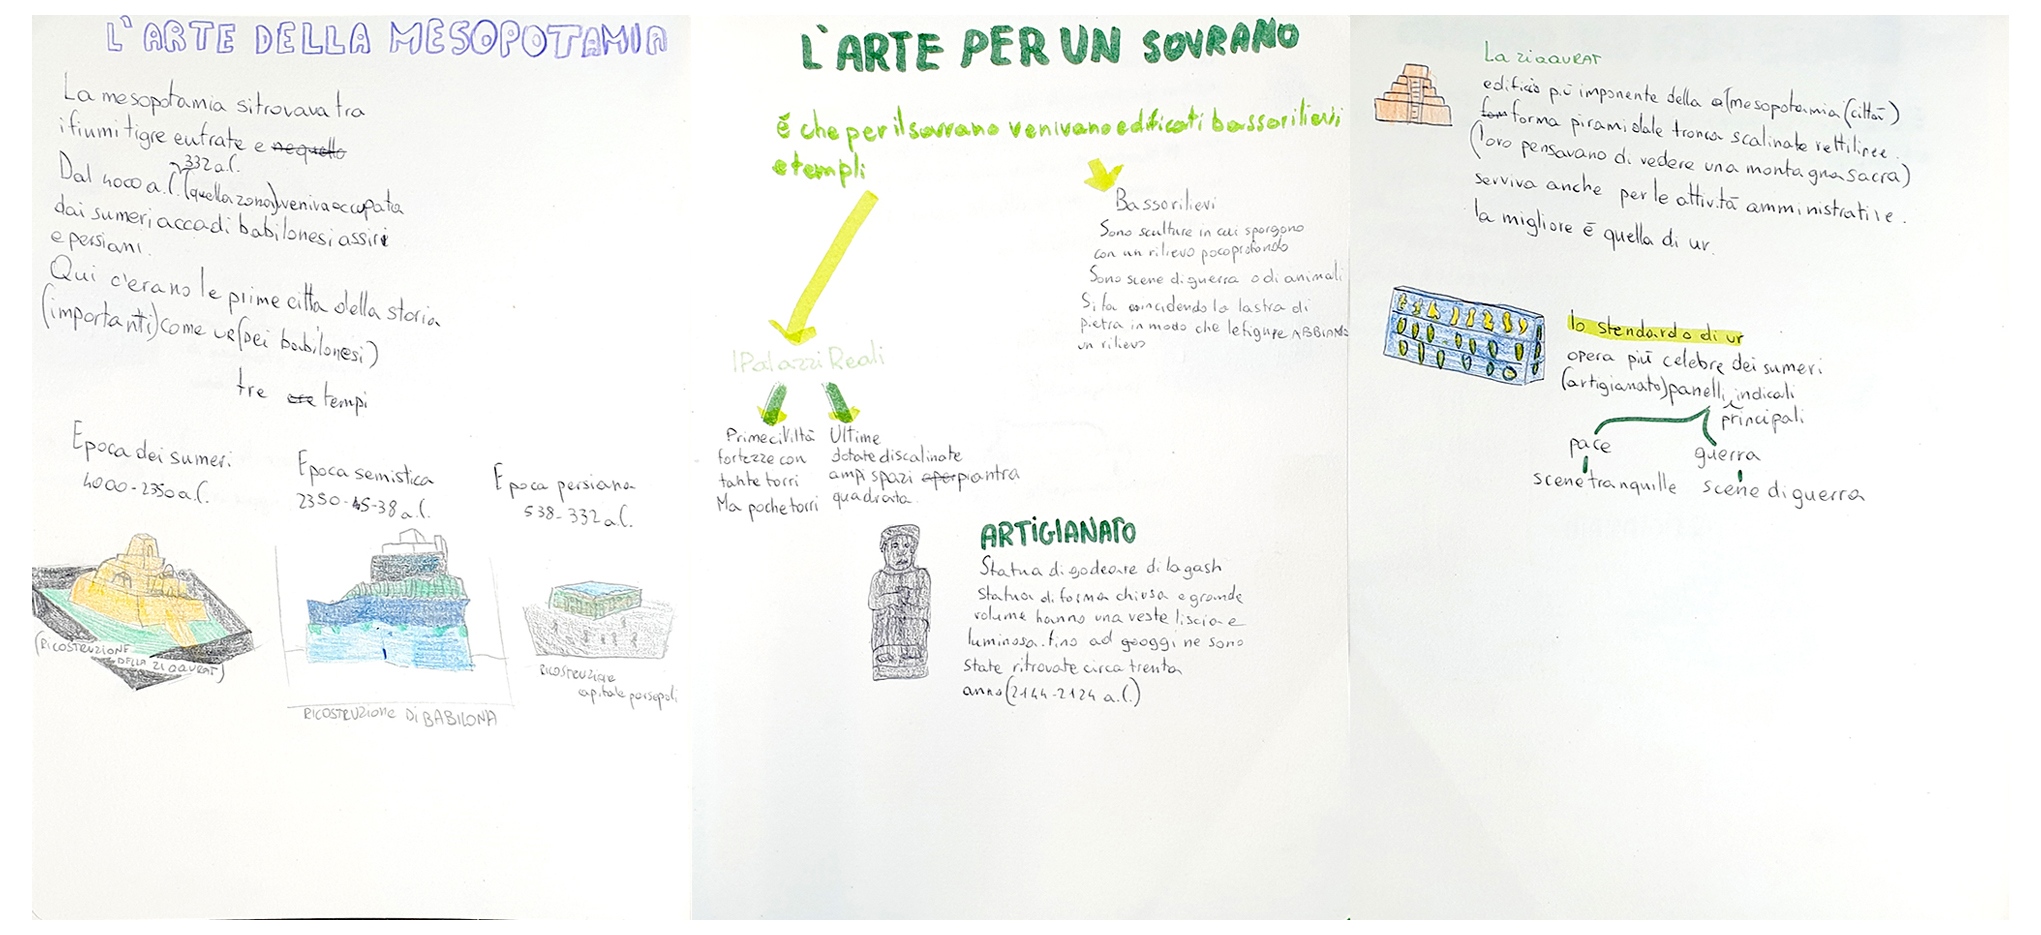 L'ARTE DELLA MESOPOTAMIA
La mesopotamia sitrovava tra
ifiumi tigre eufrate e nequello
332 a.C.
Dal 4000 a.C. (quella zona) veniva occupata
dai sumeri accadi babilonesi assiri
e persiani.
Qui c'erano le prime citta della storia
(importanti) come ur (dei babilonesi)
tre ere tempi
Epoca dei sumeri
4000-2350 a.C.
Epoca semistica
2350-45-38 a.C.
Epoca persiana
538-332 a.C.
(RICOSTRUZIONE
DELLA ZIQQURAT)
RICOSTRUZIONE DI BABILONA
RICOSTRUZIONE
capitale persepoli
L'ARTE PER UN SOVRANO
é che per il sovrano venivano edificati bassorilievi
e templi
Bassorilievi
Sono sculture in cui sporgono
con un rilievo poco profondo
Sono scene di guerra o di animali
Si fa incidendo la lastra di
pietra in modo che le figure ABBIANO
un rilievo
I Palazzi Reali
Prime civiltà
fortezze con
tante torri
Ma poche torri
Ultime
dotate di scalinate
ampi spazi e piantra
quadrata.
ARTIGIANATO
Statua di godeare di lagash
Statua di forma chiusa e grande
volume hanno una veste liscia e
luminosa. fino ad googgi ne sono
state ritrovate circa trenta
anno (2144-2124 a.C.)
La ziqqurat
edificio più imponente della mesopotamia (città)
forma piramidale tronca scalinate rettilinee.
(loro pensavano di vedere una montagna sacra)
serviva anche per le attività amministrative.
la migliore è quella di ur.
lo stendardo di ur
opera più celebre dei sumeri
(artigianato) panelli indicali
principali
pace
guerra
scene tranquille
scene di guerra